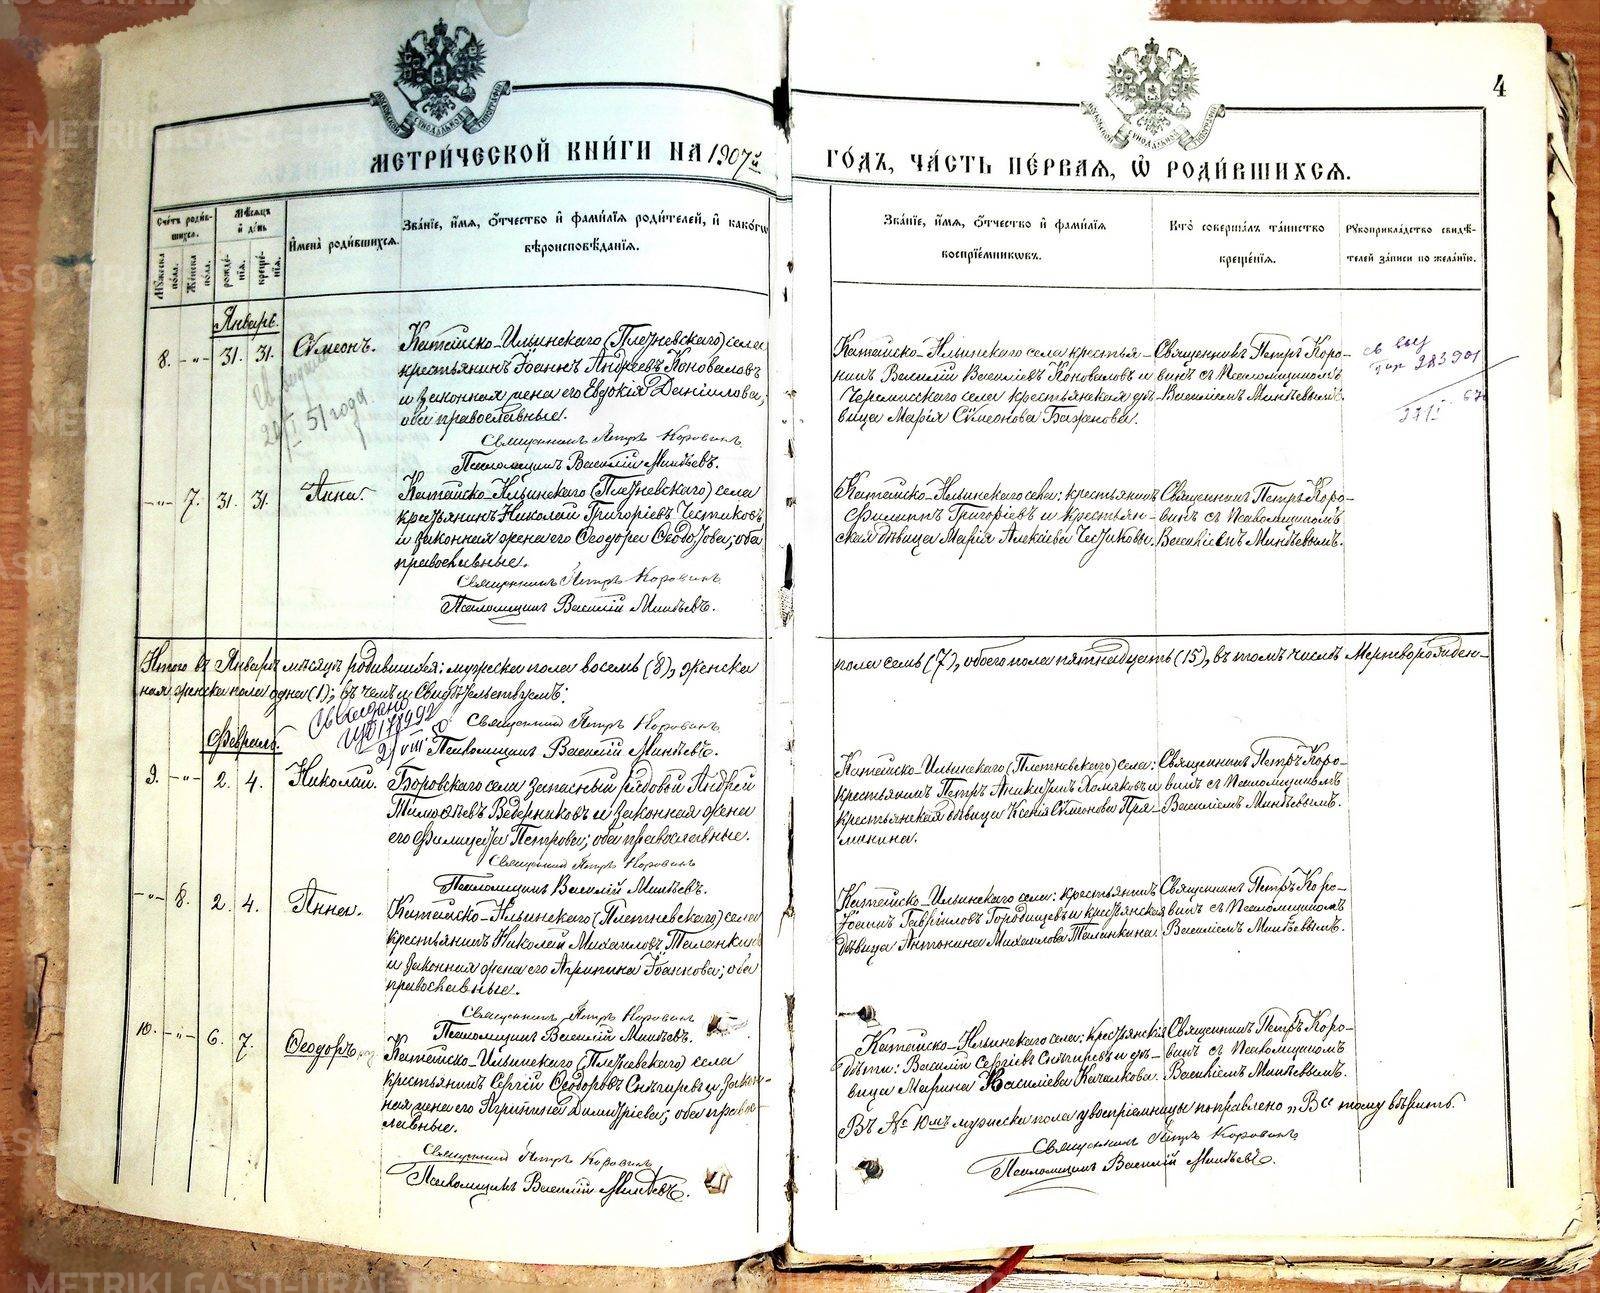 МЕТРИ́ЧЕСКОЙ КНИ́ГИ НА 1907й
ГО́ДЪ, ЧА́СТЬ ПЕ́РВАЯ, Ѡ҆ РОДИ́ВШИХСЯ.
4
Сче́тъ роди́вшихся.
Мѣ́сяцъ и҆ де́нь
И҆мена̀ роди́вшихся.
Зва́нїе, и҆́мѧ, ѻ҆́тчество и҆ фами́лїѧ роди́телей, и҆ како́гѡ
вѣроисповѣ́данїѧ.
Мꙋ́жеска по́ла.
Же́нска по́ла.
рожде́нїѧ.
креще́нїѧ.
Зва́нїе, и҆́мѧ, ѻ҆́тчество и҆ фами́лїѧ
воспрїе́мникѡвъ.
Кто̀ соверша́лъ та́инство
креще́нїѧ.
Рꙋкоприкла́дство свидѣ́-
телей за́писи по жела́нїю.
Январь.
8. - " - 31. 31. Сѵмеонъ.
Катайско-Ильинскаго (Плетневскаго) села
крестьянинъ Іоаннъ Андреевъ Коноваловъ
и законная жена его Евдокія Даніилова,
оба православные.
Священникъ Петръ Коровинъ
Псаломщикъ Василій Минѣевъ.
51 года
Катайско-Ильинскаго села крестья-
нинъ Василій Василіевъ Коноваловъ и
Черемисскаго села крестьянская дѣ-
вица Марія Сѵмеонова Баженова.
Священникъ Петръ Коро-
винъ съ псаломщикомъ
Василіемъ Минѣевымъ.
- " - 7. 31. 31. Анна.
Катайско-Ильинскаго (Плетневскаго) села
крестьянинъ Николай Григоріевъ Честиковъ
и законная жена его Ѳеодора Ѳеодотова, оба
православные.
Священникъ Петръ Коровинъ
Псаломщикъ Василій Минѣевъ.
Катайско-Ильинскаго села: крестьянинъ
Филиппъ Григоріевъ и крестьян-
ская дѣвица Марія Алексіева Честиковы.
Священникъ Петръ Коро-
винъ съ псаломщикомъ
Василіемъ Минѣевымъ.
Итого въ Январѣ мѣсяцѣ родившихся: мужеска пола восемь (8), женска
пола семь (7), обоего пола пятнадцать (15), въ томъ числѣ мертворожден-
ная женска пола одна (1); въ чемъ и свидѣтельствуемъ:
Священникъ Петръ Коровинъ
Псаломщикъ Василій Минѣевъ.
Февраль.
9. - " - 2. 4. Николай.
Боровскаго села запасный рядовой Андрей
Тимоѳеевъ Ведерниковъ и законная жена
его Филицата Петрова; оба православные.
Священникъ Петръ Коровинъ
Псаломщикъ Василій Минѣевъ.
Катайско-Ильинскаго (Плетневскаго) села:
крестьянинъ Петръ Аникитинъ Хомяковъ и
крестьянская дѣвица Ксенія Сѵмеонова Пря-
Священникъ Петръ Коро-
винъ съ псаломщикомъ
Василіемъ Минѣевымъ.
- " - 8. 2. 4. Анна.
Катайско-Ильинскаго (Плетневскаго) села
крестьянинъ Николай Михаиловъ Таланкинъ
и законная жена его Агрипина Іоаннова; оба
православные.
Священникъ Петръ Коровинъ
Псаломщикъ Василій Минѣевъ.
Катайско-Ильинскаго села: крестьянинъ
Іоаннъ Гавріиловъ Городищевъ и крестьянская
дѣвица Антонина Михаилова Таланкина.
Священникъ Петръ Коро-
винъ съ псаломщикомъ
Василіемъ Минѣевымъ.
10. - " - 6. 7. Ѳеодоръ
Катайско-Ильинскаго (Плетневскаго) села
крестьянинъ Сергій Ѳеодоровъ Снѣгиревъ и закон-
ная жена его Агрипина Димитріева; оба право-
славные.
Священникъ Петръ Коровинъ
Псаломщикъ Василій Минѣевъ.
Катайско-Ильинскаго села: крестьянскія
дѣти: Василій Сергіевъ Снѣгиревъ и дѣ-
вица Марина Василіева Качалкова.
Священникъ Петръ Коро-
винъ съ псаломщикомъ
Василіемъ Минѣевымъ.
Въ № 10мъ мужеска пола у воспріемницы поправлено „В" тому вѣрить.
Священникъ Петръ Коровинъ
Псаломщикъ Василій Минѣевъ.
METRIKI.GASO-URAL.RU